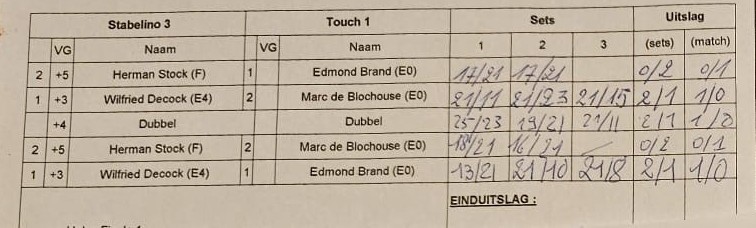 Stabelino 3 Touch 1 Sets Uitslag
VG Naam VG Naam 1 2 3 (sets) (match)
2 +5 Herman Stock (F) 1 Edmond Brand (E0) 17/21 17/21 0/2 0/1
1 +3 Wilfried Decock (E4) 2 Marc de Blochouse (E0) 21/11 21/23 21/15 2/1 1/0
+4 Dubbel Dubbel 25/23 19/21 21/11 2/1 1/0
2 +5 Herman Stock (F) 2 Marc de Blochouse (E0) 18/21 16/21 0/2 0/1
1 +3 Wilfried Decock (E4) 1 Edmond Brand (E0) 13/21 21/10 21/8 2/1 1/0
EINDUITSLAG :